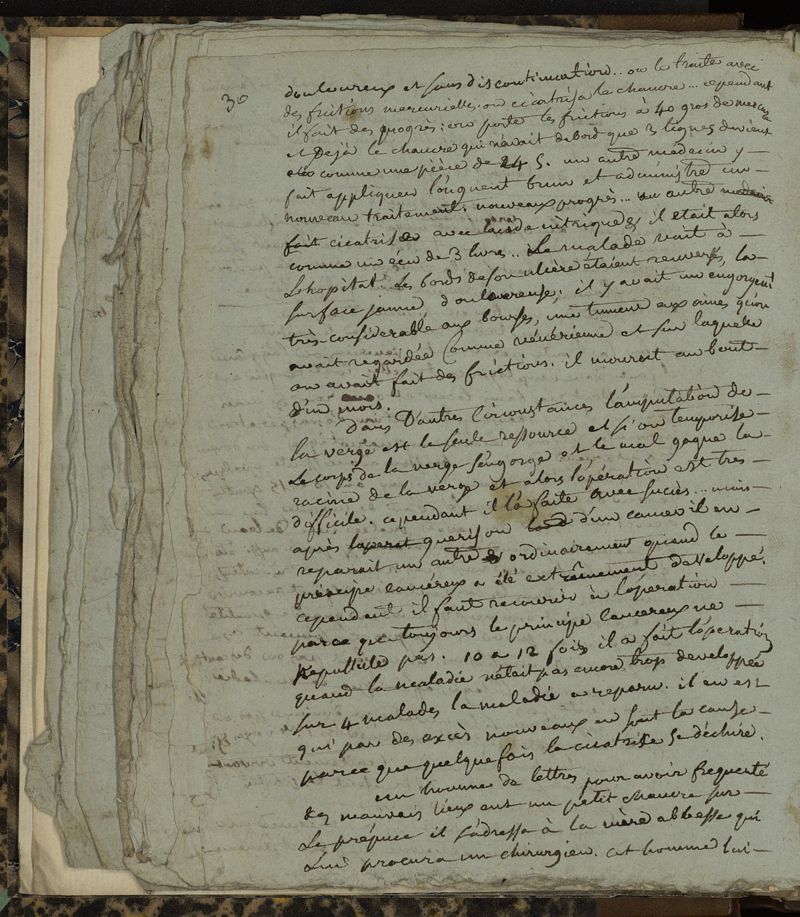 30
douloureux et sans discontinuation.. on le traite avec
des frictions mercurielles. on cicatrisa le chancre... cependant
il fait des progrès; on porte les frictions à 40 gros de mercure
et Déjà le chancre qui n'avait dabord que 3 lignes devient
comme une pièce de 24 S. un autre medecin y
fait appliquer l'onguent brun et administre un
nouveau traitement. nouveaux progrès... un autre medecin
fait cicatriser avec lacide nitrique; il etait alors
comme un écu de 3 livres.. Le malade vait à
L'hopital. les bords de son ulcère étaient renversés, la
surface jaune douloureuse; il y avait un engorgement
très considerable aux bourses, une tumeur aux aines qu'on
avait regardée Comme vénérienne et sur laquelle
on avait fait des frictions. il mourut au bout
d'un mois.
Dans D'autres Circonstances l'amputation de
la verge est la seule ressource et si on temporise
Le corps de la verge s'engorge et le mal gagne la
racine de la verge et alors l'opération est tres
difficile. cependant il l'a faite avec succès... mais
après guerison d'un cancer il en
reparait un autre ordinairement quand le
principe cancéreux a été extrêmement développé.
cependant il faut recourir à l'opération
parce que toujours le principe cancereux ne
repullule pas. 10 a 12 fois il a fait l'operation
quand la maladie n'était pas encore trop developpée
sur 4 malades la maladie a reparu. il en est
qui par des excès nouveaux en sont la cause
parce que quelquefois la cicatrise se déchire.
un homme de lettres pour avoir frequenté
des mauvais lieux eut un petit chancre sur
Le prépuce il s'adressa à la mère abbesse qui
Lui procura un chirurgien. cet homme lui